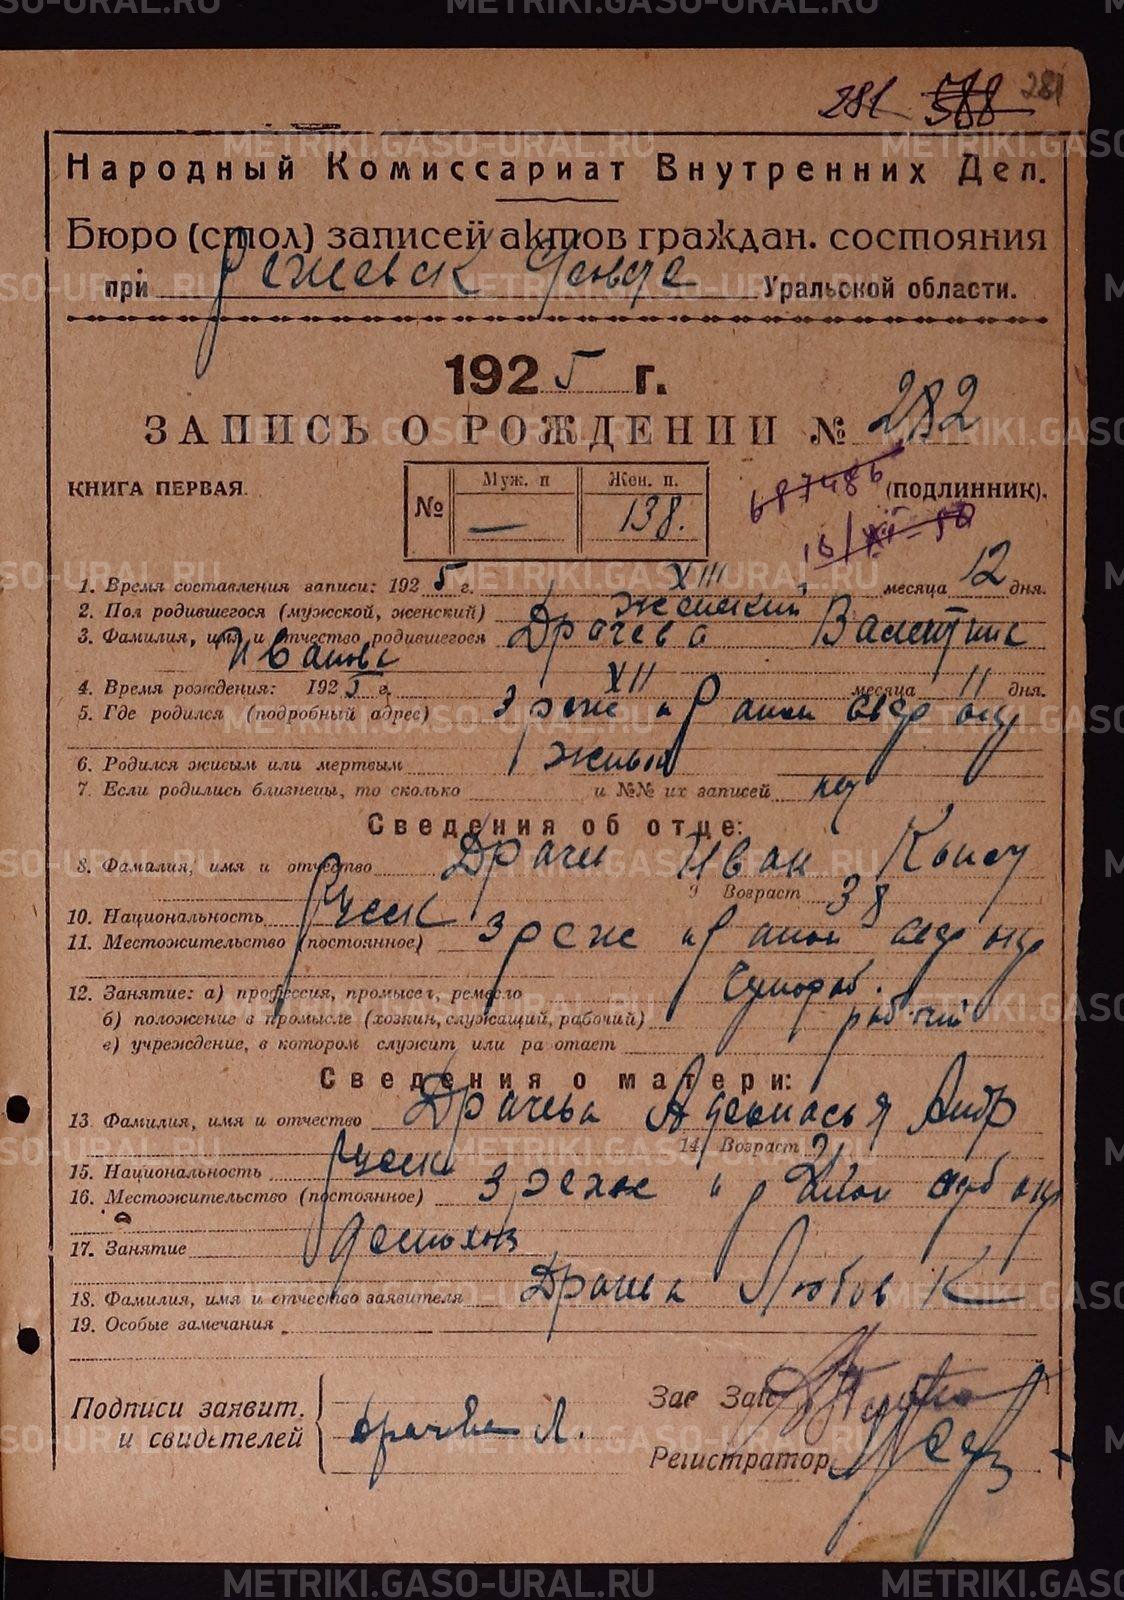 281 588 281
Народный Комиссариат Внутренних Дел.
Бюро (стол) записей актов граждан. состояния
при Режевск Уральской области.
1925 г.
ЗАПИСЬ О РОЖДЕНИИ № 282
КНИГА ПЕРВАЯ.
№ Муж. п — Жен. п. 138.
687486 (подлинник).
1. Время составления записи: 1925 г. XIII месяца 12 дня.
2. Пол родившегося (мужской, женский) женский
3. Фамилия, имя и отчество родившегося Драчева Валентина
Ивановн
4. Время рождения: 1925 г. XII месяца 11 дня.
5. Где родился (подробный адрес) реж
6. Родился живым или мертвым живым
7. Если родились близнецы, то сколько и №№ их записей нет
Сведения об отце:
8. Фамалия, имя и отчество Драчи Иван
9 Возраст 38
10. Национальность Русск
11. Местожительство (постоянное) реж
12. Занятие: а) профессия, промысел, ремесло
б) положение в промысле (хозяин, служащий, рабочий) рабочий
в) учреждение, в котором служит или ра отает
Сведения о матери:
13 Фамилия, имя и отчество Драчева Андр
14. Возраст
15. Национальность Русск
16. Местожительство (постоянное)
17. Занятие домохоз
18. Фамилия, имя и отчество заявителя Драчева Любов К
19. Особые замечания
Подписи заявит. и свидетелей Драчева Л.
Зав Заг
Регистратор
METRIKI.GASO-URAL.RU